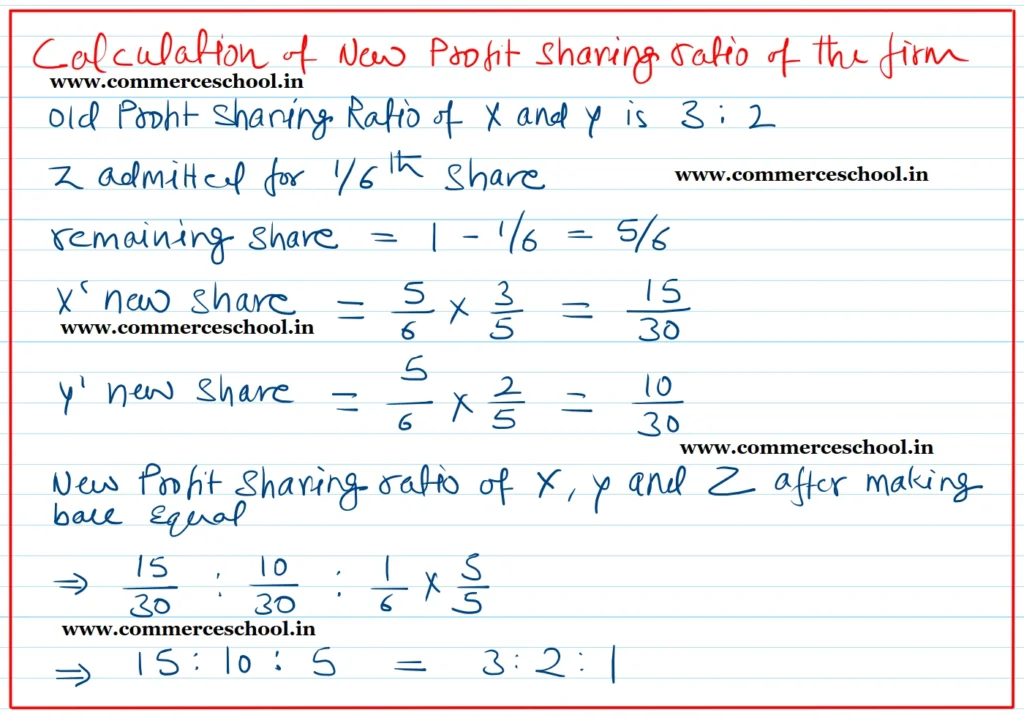 Calculation of New Profit Sharing ratio of the firm
www.commerceschool.in
old Profit Sharing Ratio of X and Y is 3 : 2
Z admitted for 1/6th Share
www.commerceschool.in
remaining Share = 1 - 1/6 = 5/6
X' new Share = 5/6 × 3/5 = 15/30
www.commerceschool.in
Y' new Share = 5/6 × 2/5 = 10/30
www.commerceschool.in
New Profit Sharing ratio of X, Y and Z after making
base Equal
⇒ 15/30 : 10/30 : 1/6 × 5/5
www.commerceschool.in
⇒ 15 : 10 : 5 = 3 : 2 : 1